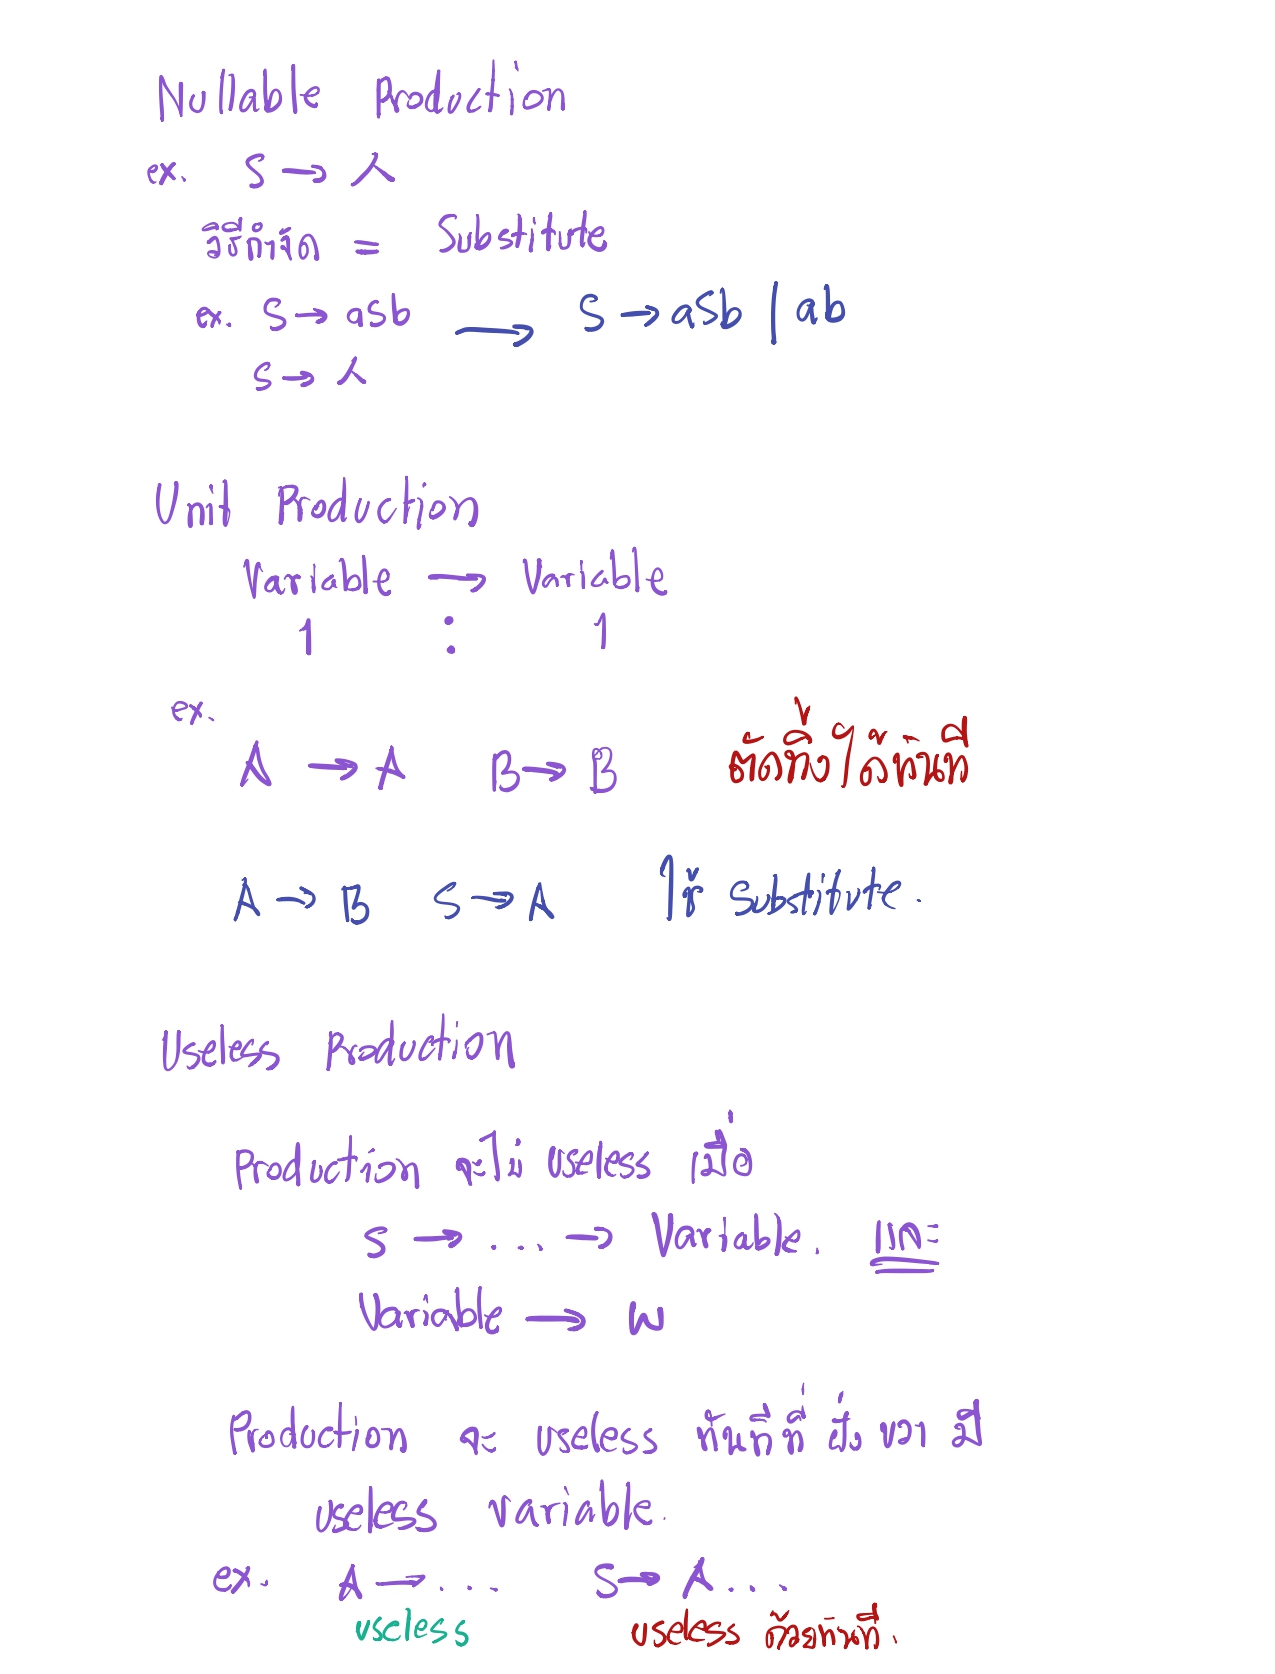 Nullable Production
ex. S → 人
วิธีกำจัด = Substitute
ex. S → aSb ⟶ S → aSb | ab
S → 人
Unit Production
Variable → Variable
1 : 1
ex.
A → A B → B ตัดทิ้งได้ทันที
A → B S → A ใช้ Substitute.
Useless Production
Production จะไม่ useless เมื่อ
S → ... → Variable. และ
Variable → w
Production จะ useless ทันทีที่ ฝั่ง ขวา มี
useless variable.
ex. A → ... S → A ...
useless useless ด้วยทันที.